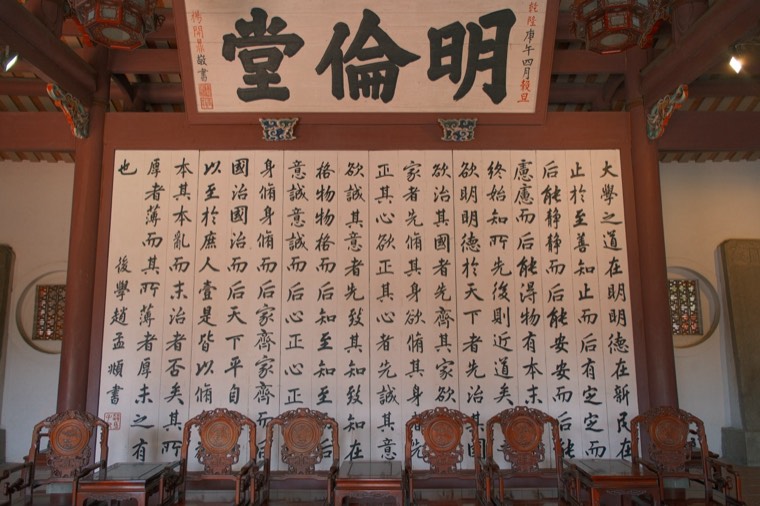 明倫堂
乾隆庚午四月穀旦
楊開鼎敬書
大學之道在明明德在新民在
止於至善知止而后有定定而
后能靜靜而后能安安而后能
慮慮而后能得物有本末
終始知所先後則近道矣
欲明明德於天下者先治其國
欲治其國者先齊其家欲
家者先脩其身欲脩其身者先
正其心欲正其心者先誠其意
欲誠其意者先致其知致知在
格物物格而后知至知至而
意誠意誠而后心正心正
身脩身脩而后家齊家齊而后
國治國治而后天下平自
以至於庶人壹是皆以脩
本其本亂而末治者否矣其所
厚者薄而其所薄者厚未之有
也
後學趙孟頫書